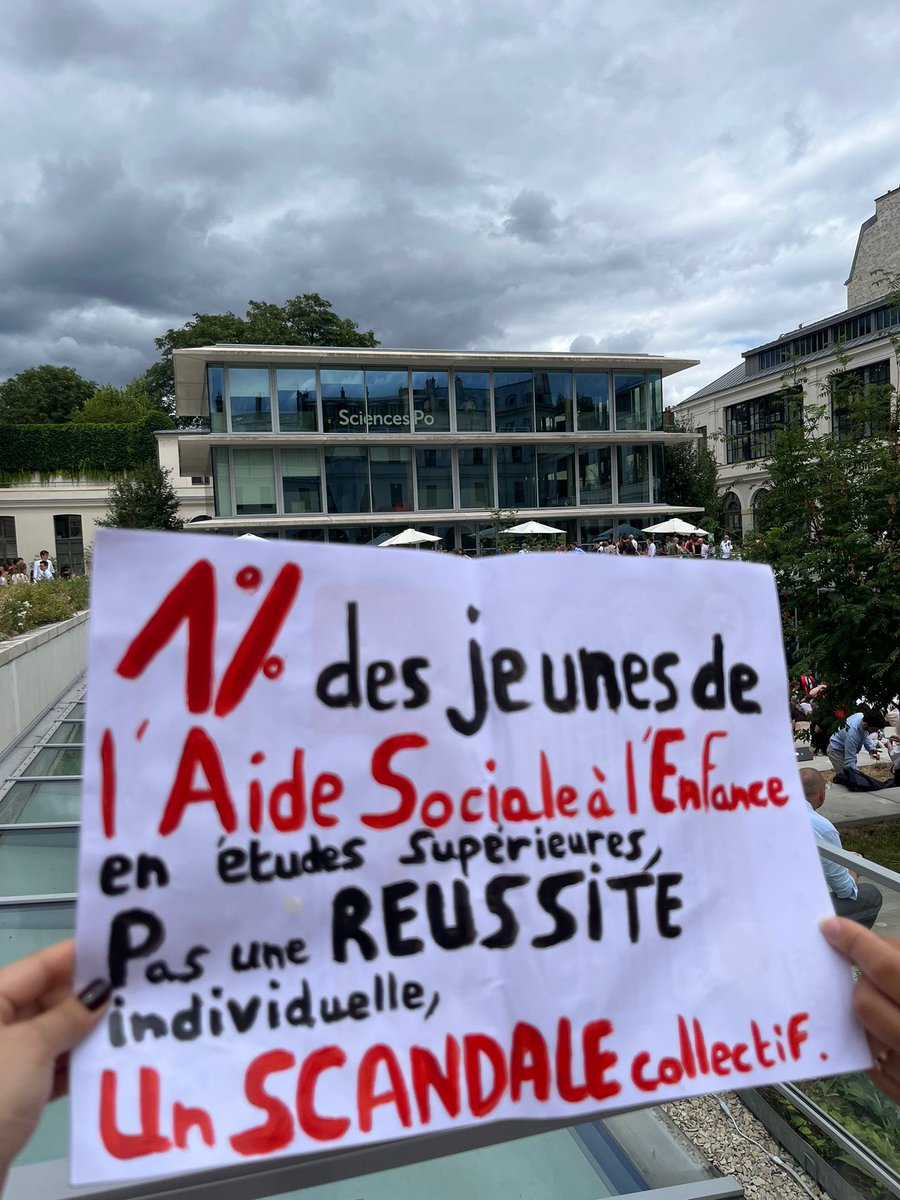 SciencesPo
1% des jeunes de
l'Aide Sociale à l'Enfance
en études supérieures,
Pas une REUSSITÉ
individuelle,
Un SCANDALE collectif.